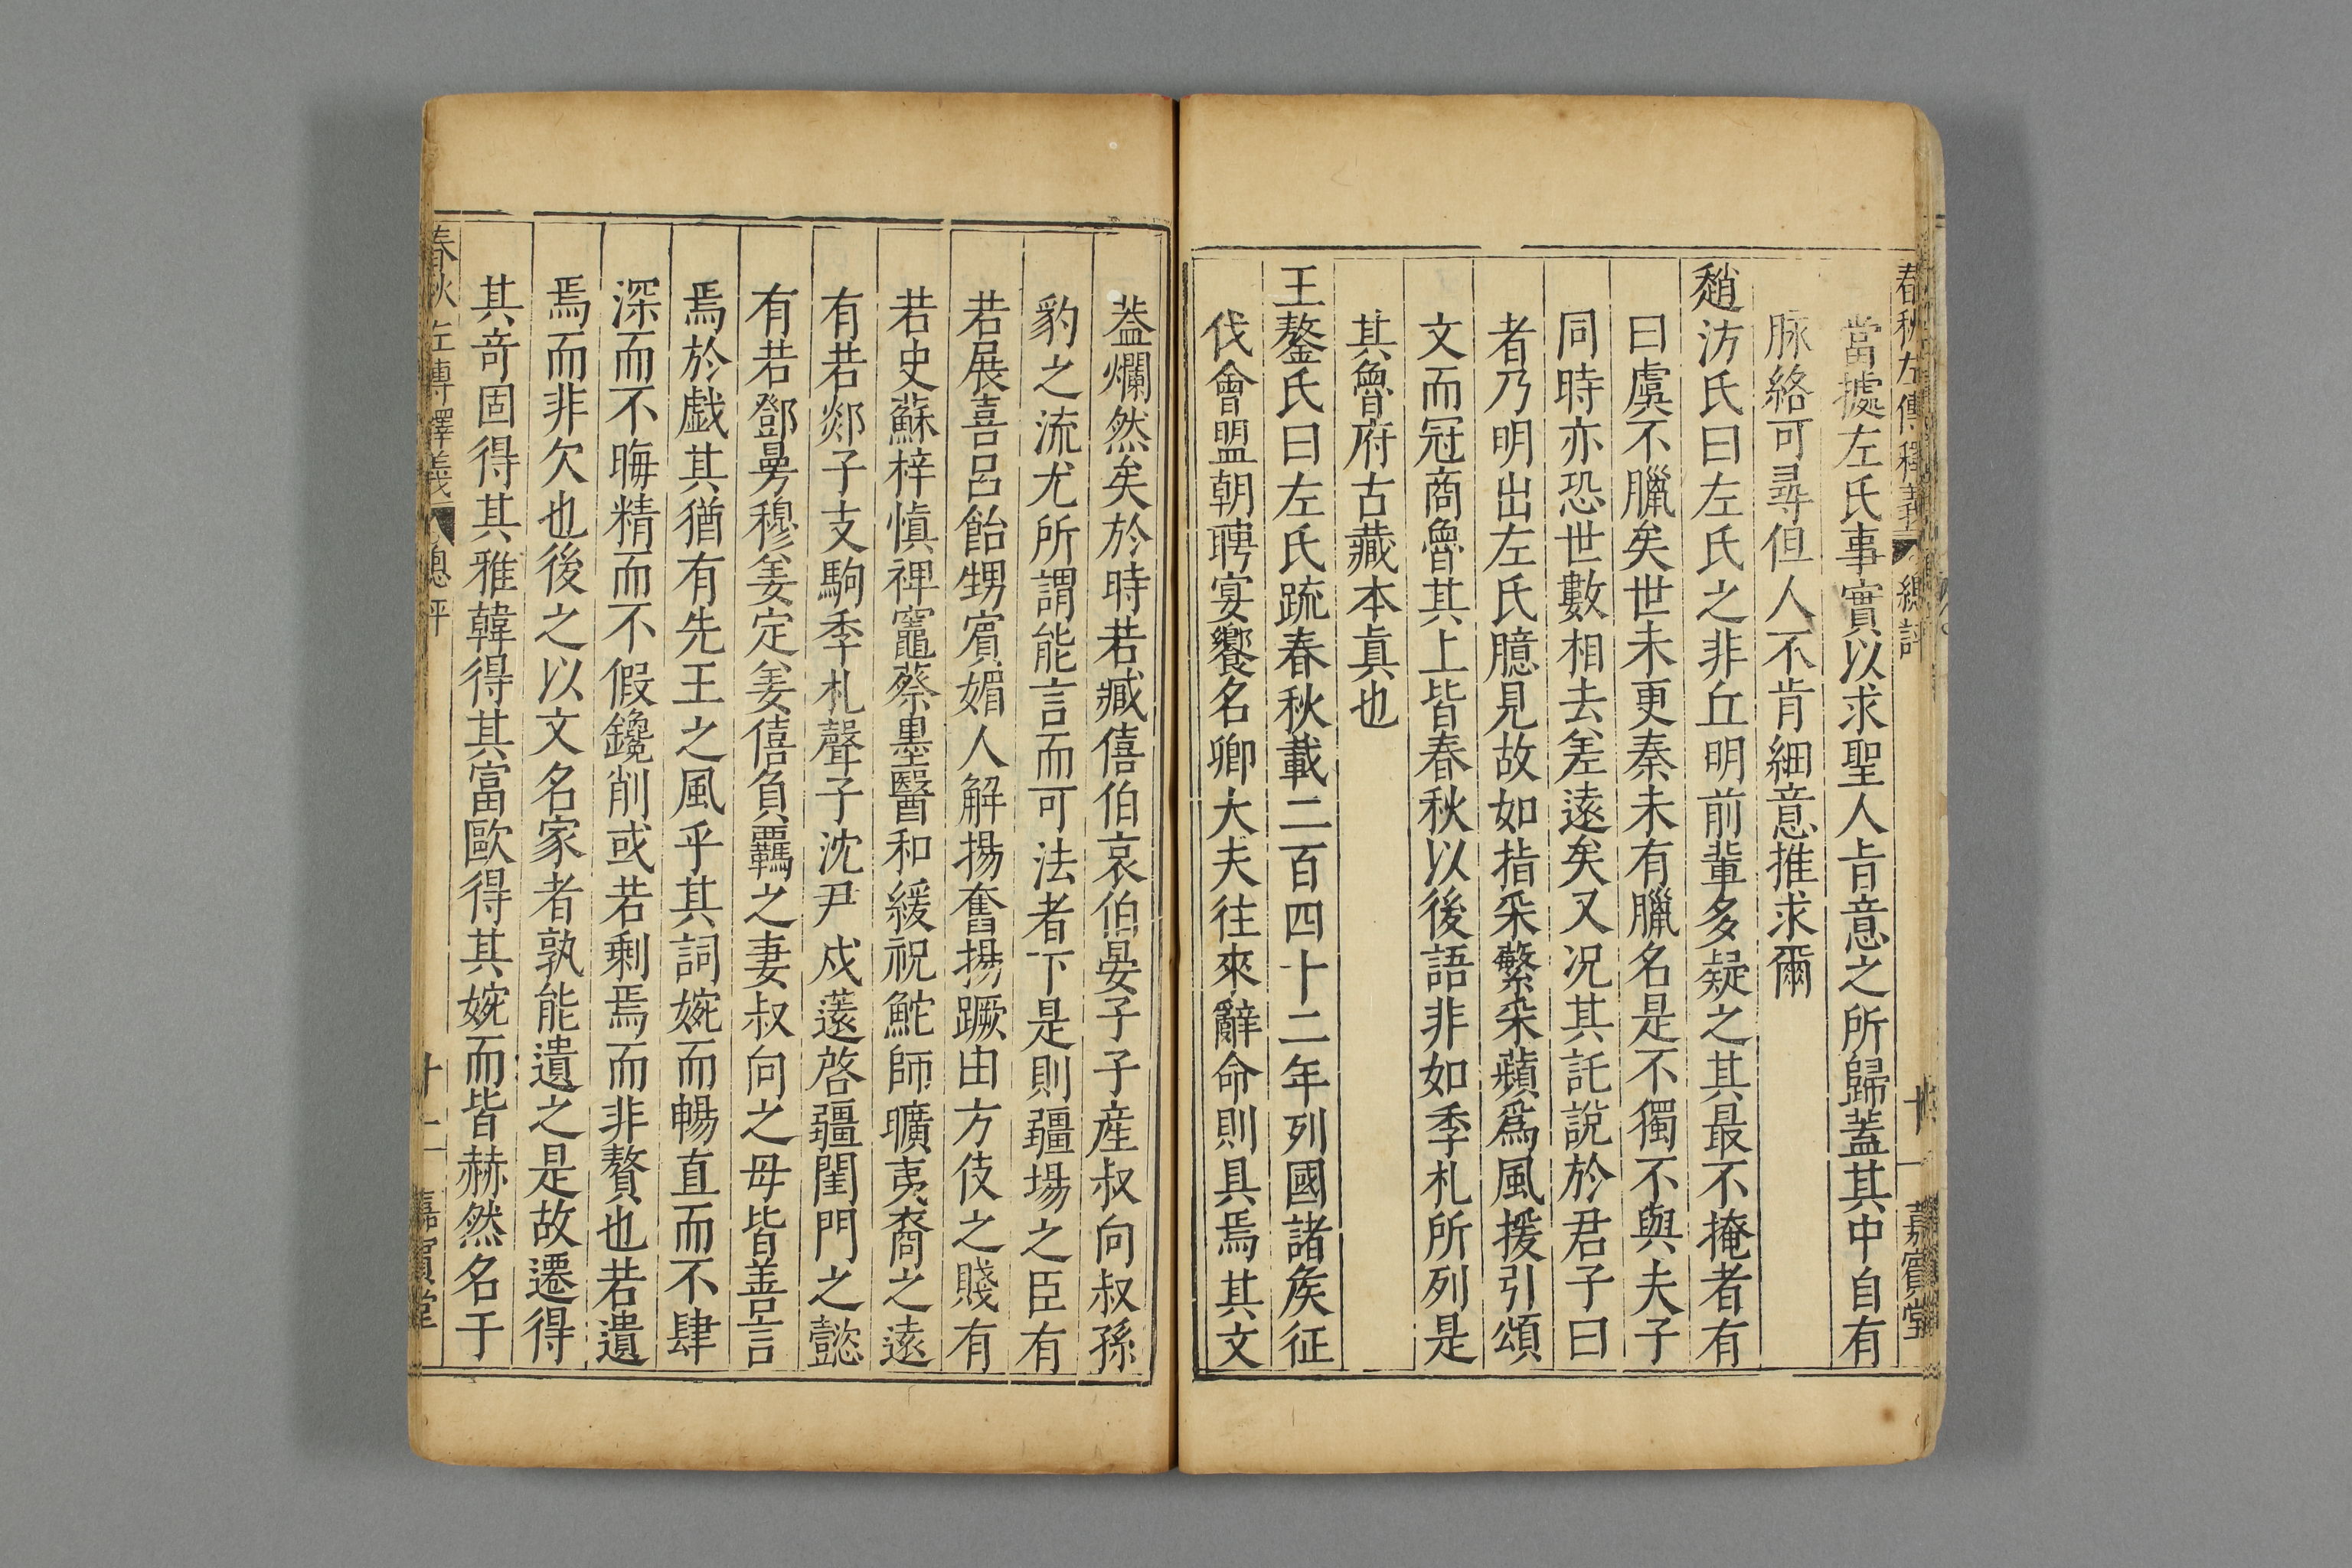 春秋左傳釋義 總評 十一 嘉賓堂
當據左氏事實以求聖人㫖意之所歸葢其中自有
脉絡可尋但人不肯細意推求爾
趙汸氏曰左氏之非丘明前輩多疑之其最不掩者有
曰虞不臘矣世未更秦未有臘名是不獨不與夫子
同時亦恐世數相去差遠矣又况其託說於君子曰
者乃明出左氏臆見故如指采繁采蘋爲風援引頌
文而冠商魯其上皆春秋以後語非如季札所列是
其魯府古藏本真也
王鏊氏曰左氏疏春秋載二百四十二年列國諸矦征
伐會盟朝聘宴饗名卿大夫往來辭命則具焉其文
葢爛然矣於時若臧僖伯哀伯晏子子産叔向叔孫
豹之流尤所謂能言而可法者下是則疆場之臣有
若展喜呂飴甥賓媚人解揚奮揚蹶由方伎之賤有
若史蘇梓慎禆竈蔡墨醫和緩祝鮀師曠夷裔之遠
有若郯子支駒季札聲子沈尹戍薳啓疆閨門之懿
有若鄧曼穆姜定姜僖負羈之妻叔向之母皆善言
焉於戯其猶有先王之風乎其詞婉而暢直而不肆
深而不晦精而不假鑱削或若剩焉而非贅也若遺
焉而非欠也後之以文名家者孰能遺之是故遷得
其竒固得其雅韓得其富歐得其婉而皆赫然名于
春秋左傳釋義 總評 十二 嘉賓堂